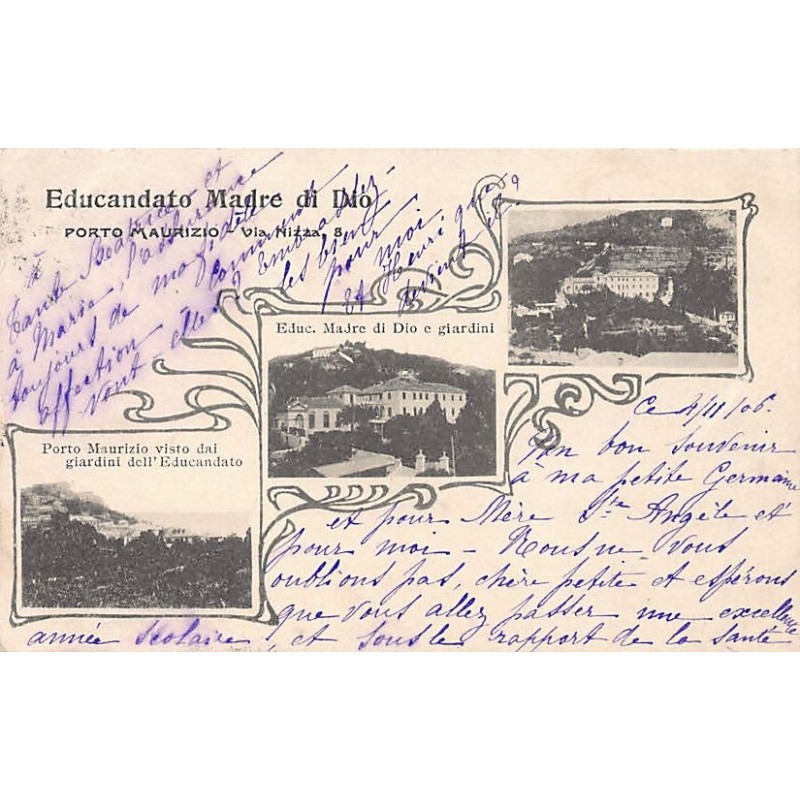 Educandato Madre di Dio
PORTO MAURIZIO Via Nizza, 8.
Educ. Madre di Dio e giardini
Porto Maurizio visto dai
giardini dell'Educandato
Ce 4/11/06.
bon souvenir
à ma petite Germaine
et pour Mère Ste Angèle et
pour moi – Nous ne vous
oublions pas, chère petite et espérons
que vous allez passer une excellente
année scolaire, et sous le rapport de la santé
et
Tante Béatrice
à Marie, l'assurance
toujours de ma fidèle
affection. Comment
vont elles ? Embrassez
les bien pour
moi
Et Henri que
devient il ?